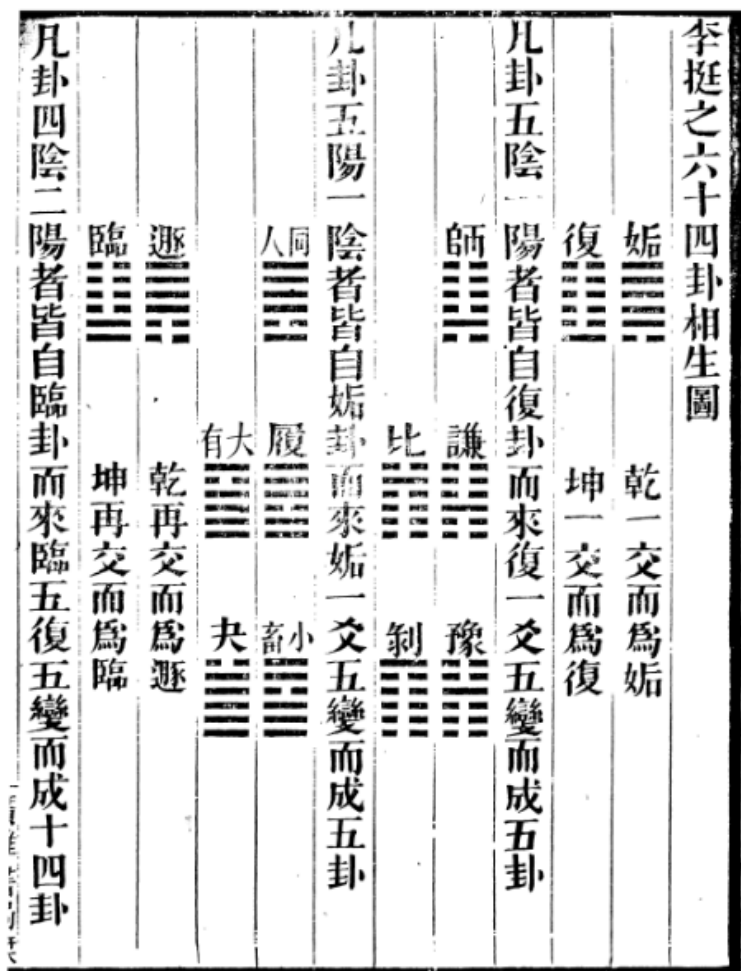 李挺之六十四卦相生圖
姤 乾一交而爲姤
復 坤一交而爲復
凡卦五陰一陽者皆自復卦而來復一爻五變而成五卦
師 謙 豫
比 剝
凡卦五陽一陰者皆自姤卦而來姤一爻五變而成五卦
同人 履 小畜
大有 夬
遯 乾再交而爲遯
臨 坤再交而爲臨
凡卦四陰二陽者皆自臨卦而來臨五復五變而成十四卦